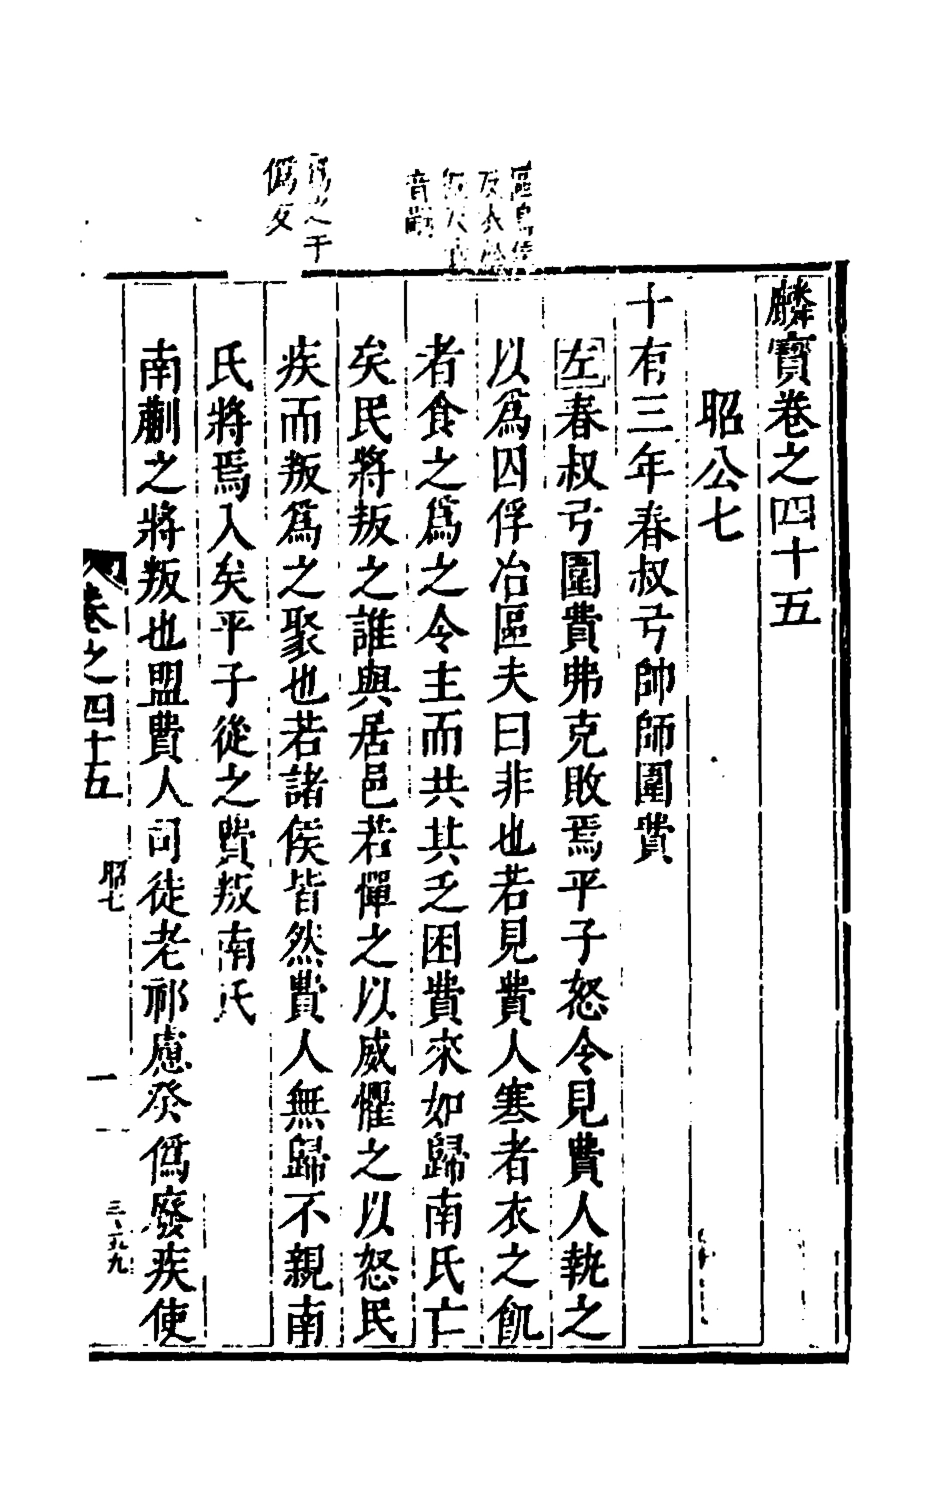 麟寶卷之四十五
昭公七
十有三年春叔弓帥師圍費
左春叔弓圍費弗克敗焉平子怒令見費人執之
以爲四俘冶區夫曰非也若見費人寒者衣之飢
者食之爲之令主而共其乏困費來如歸南氏亡
矣民將叛之誰與居邑若憚之以威懼之以怒民
疾而叛爲之聚也若諸侯皆然費人無歸不親南
氏將焉入矣平子從之費叛南氏
南蒯之將叛也盟費人司徒老祁慮癸僞廢疾使
卷之四十五
昭七
一
音嗣
僞反